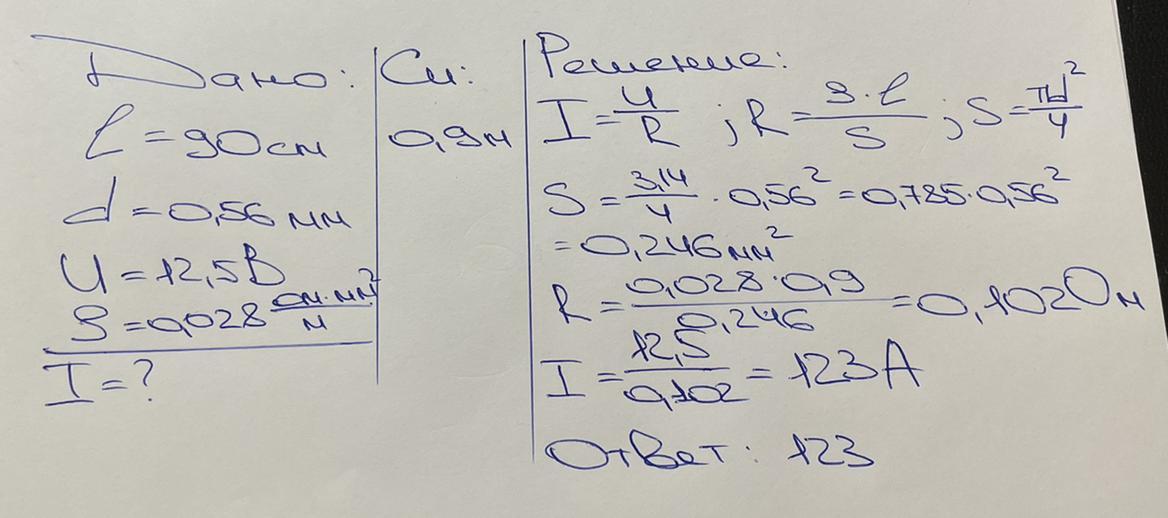 Дано:
l = 90 см
d = 0,56 мм
U = 12,5 В
ρ = 0,028 Ом·мм²/м
I = ?
Си:
0,9 м
Решение:
I = U/R ; R = ρ·l/S ; S = πd²/4
S = 3,14/4 · 0,56² = 0,785·0,56²
= 0,246 мм²
R = 0,028·0,9/0,246 = 0,102 Ом
I = 12,5/0,102 = 123 А
Ответ: 123